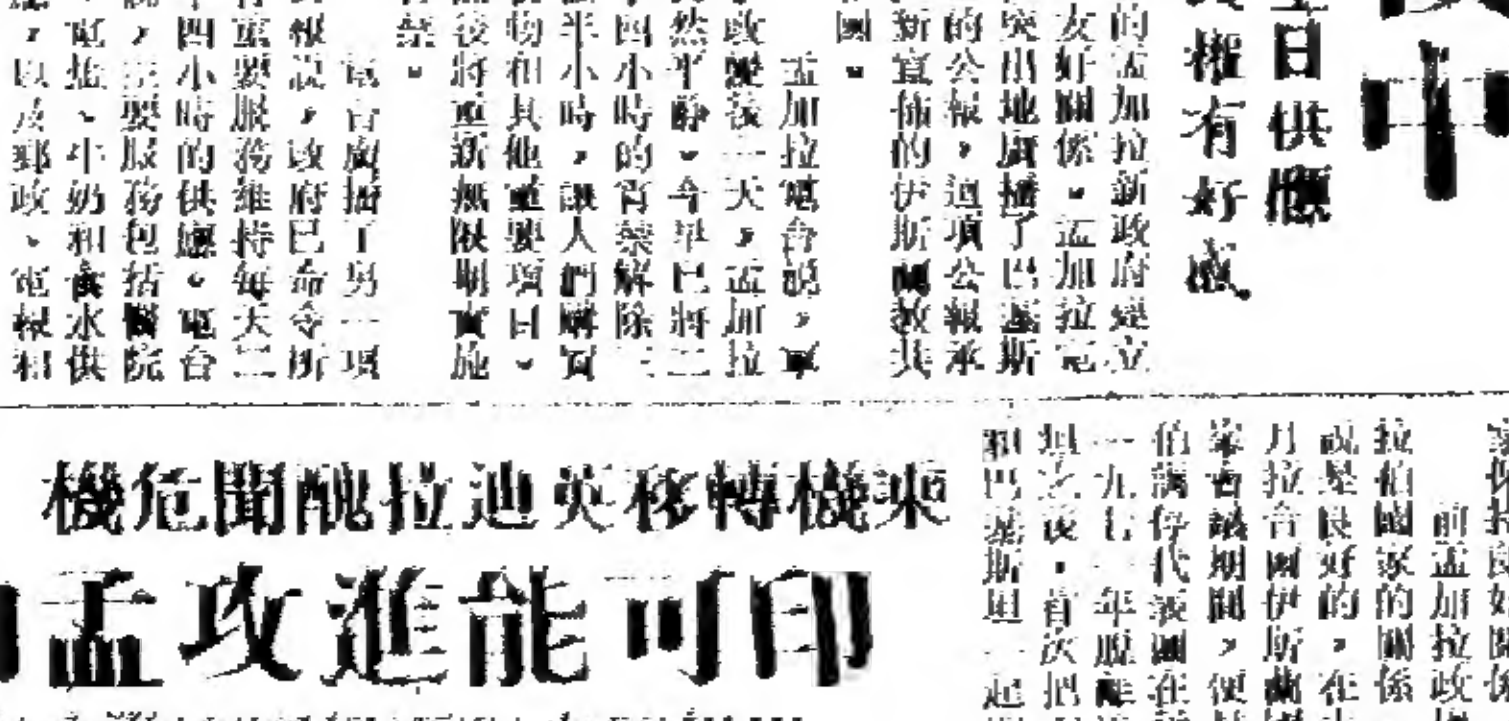 中
日供應
權有好感。
的孟加拉新政府建立
友好關係。孟加拉電
突出地廣播了巴基斯
的公報,這項公報承
新宣佈的伊斯蘭教共
國。
孟加拉電台說,軍
政變後一天,孟加拉
然平靜。今早已將二
四小時的宵禁解除三
半小時,讓人們購買
物和其他重要項目。
後將重新無限期實施
禁。
電台廣播了另一項
報說,政府已命令所
重要服務維持每天二
四小時的供應。電台
主要服務包括醫院
電拖、牛奶和食水供
,以及郵政、電報和
家保持良好關係
前孟加拉政
拉伯國家的關係
說是良好的,在
月拉合爾伊斯蘭
家會議期間,便
伯滿俘代表團在
一九七一年脫離
坦之後,首次把
和巴基斯坦一起
機危聞醜拉迪英移轉機乘
孟攻進能可印